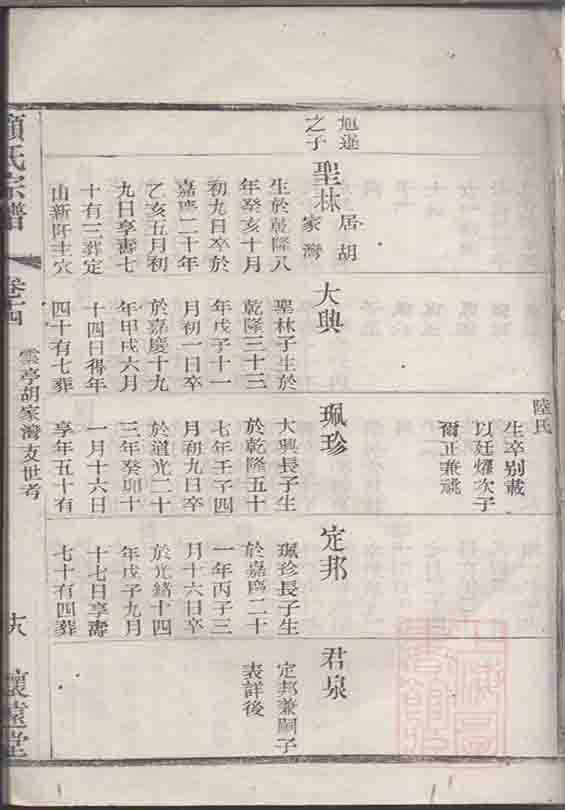 陸氏
生卒別載
以廷燿次子
爾正兼祧
之子
聖林
居胡
家灣
生於乾隆八
年癸亥十月
初九日卒於
嘉慶二十年
乙亥五月初
九日享壽七
十有三葬定
山新阡主穴
大興
聖林子生於
乾隆三十三
年戊子十一
月初一日卒
於嘉慶十九
年甲戌六月
十四日得年
四十有七葬
珮珍
大興長子生
於乾隆五十
七年壬子四
月初九日卒
於道光二十
三年癸卯十
一月十六日
享年五十有
定邦
珮珍長子生
於嘉慶二十
一年丙子三
月十六日卒
於光緒十四
年戊子九月
十七日享壽
七十有四葬
君泉
定邦兼嗣子
表詳後
氏宗譜
卷十四
雲亭胡家灣支世考
懷遠堂